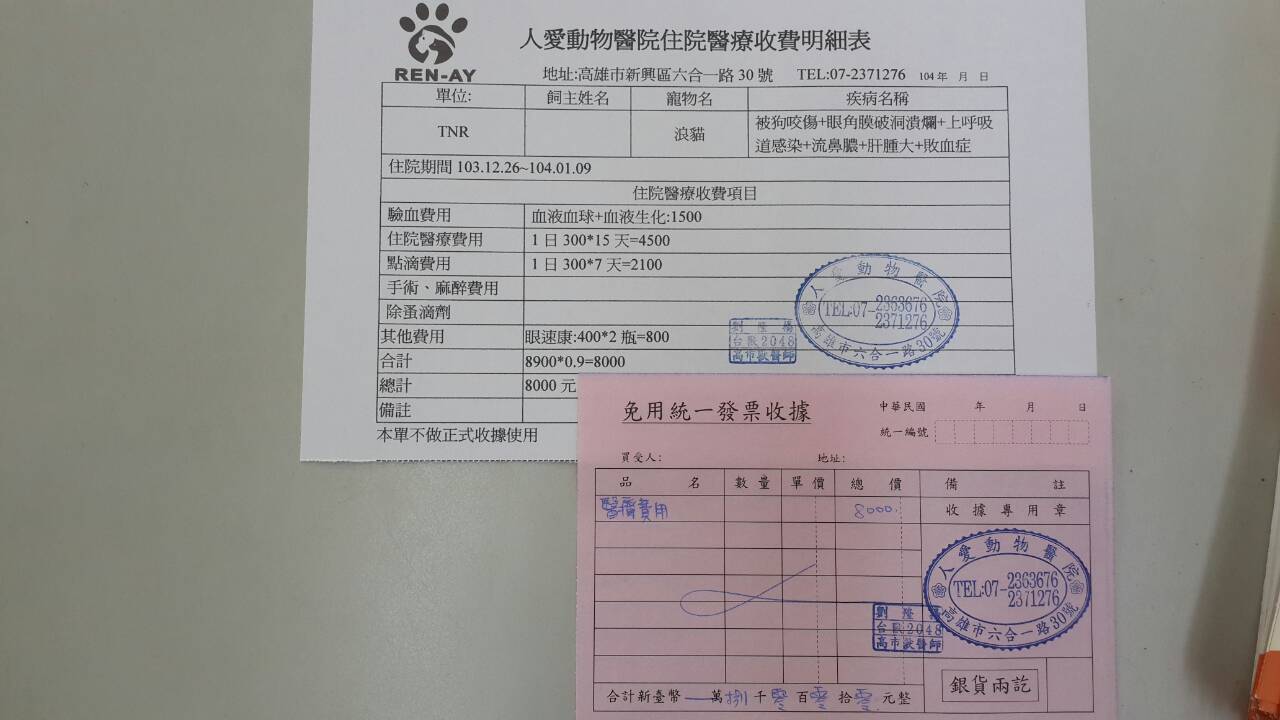 REN-AY
人愛動物醫院住院醫療收費明細表
地址:高雄市新興區六合一路 30 號 TEL:07-2371276 104 年 月 日
單位: 飼主姓名 寵物名 疾病名稱
TNR 浪貓 被狗咬傷+眼角膜破洞潰爛+上呼吸
道感染+流鼻膿+肝腫大+敗血症
住院期間 103.12.26~104.01.09
住院醫療收費項目
驗血費用 血液血球+血液生化:1500
住院醫療費用 1 日 300*15 天=4500
點滴費用 1 日 300*7 天=2100
手術、麻醉費用
除蚤滴劑
其他費用 眼速康:400*2 瓶=800
合計 8900*0.9=8000
總計 8000 元
備註
本單不做正式收據使用
人愛動物醫院
TEL:07-2363676
2371276
高雄市六合一路30號
台獸2048
高市獸醫師
免用統一發票收據
中華民國 年 月 日
統一編號
買受人: 地址:
品名 數量 單價 總價 備註
醫療費用 8000 收據專用章
人愛動物醫院
TEL:07-2363676
2371276
高雄市六合一路30號
台獸2048
高市獸醫師
合計新臺幣 萬捌千零百零拾零元整
銀貨兩訖